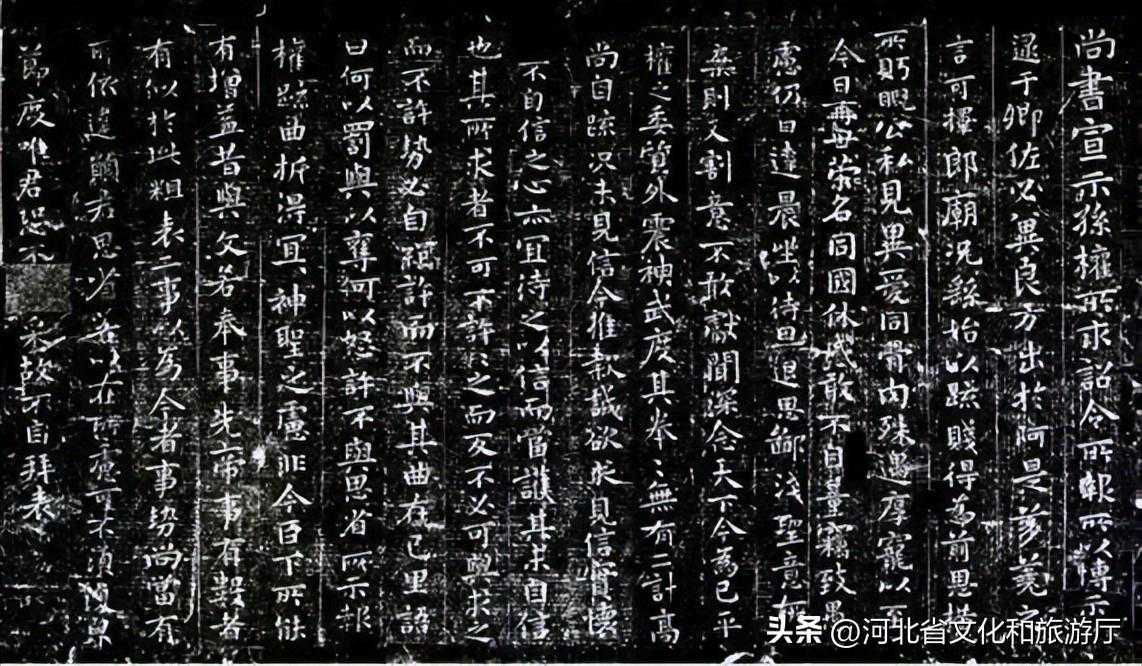 尚書宣示孫權所求詔令所報所以博示
逮于卿佐必異良方出於阿是芻蕘之
言可擇郎廟況繇始以疏賤得為前恩橫
所眄睨公私見異愛同骨肉殊遇厚寵以至
今日再世榮名同國休慼敢不自量竊致愚
慮仍日達晨坐以待旦退思鄙淺聖意所
棄則又割意不敢獻聞深念天下今為已平
權之委質外震神武度其拳〻無有二計高
尚自疏況未見信今推款誠欲求見信實懷
不自信之心亦宜待之以信而當護其未自信
也其所求者不可不許許之而反不必可與求之
而不許勢必自絕許而不與其曲在己里語
曰何以罰與以奪何以怒許不與思省所示報
權疏曲折得宜宜神聖之慮非今臣下所能
有增益昔與文若奉事先帝事有數者
有似於此粗表二事以為今者事勢尚當有
所依違願君思省若以在所慮可不須復皃
節度唯君恐不
采故不自拜表
头条 @河北省文化和旅游厅